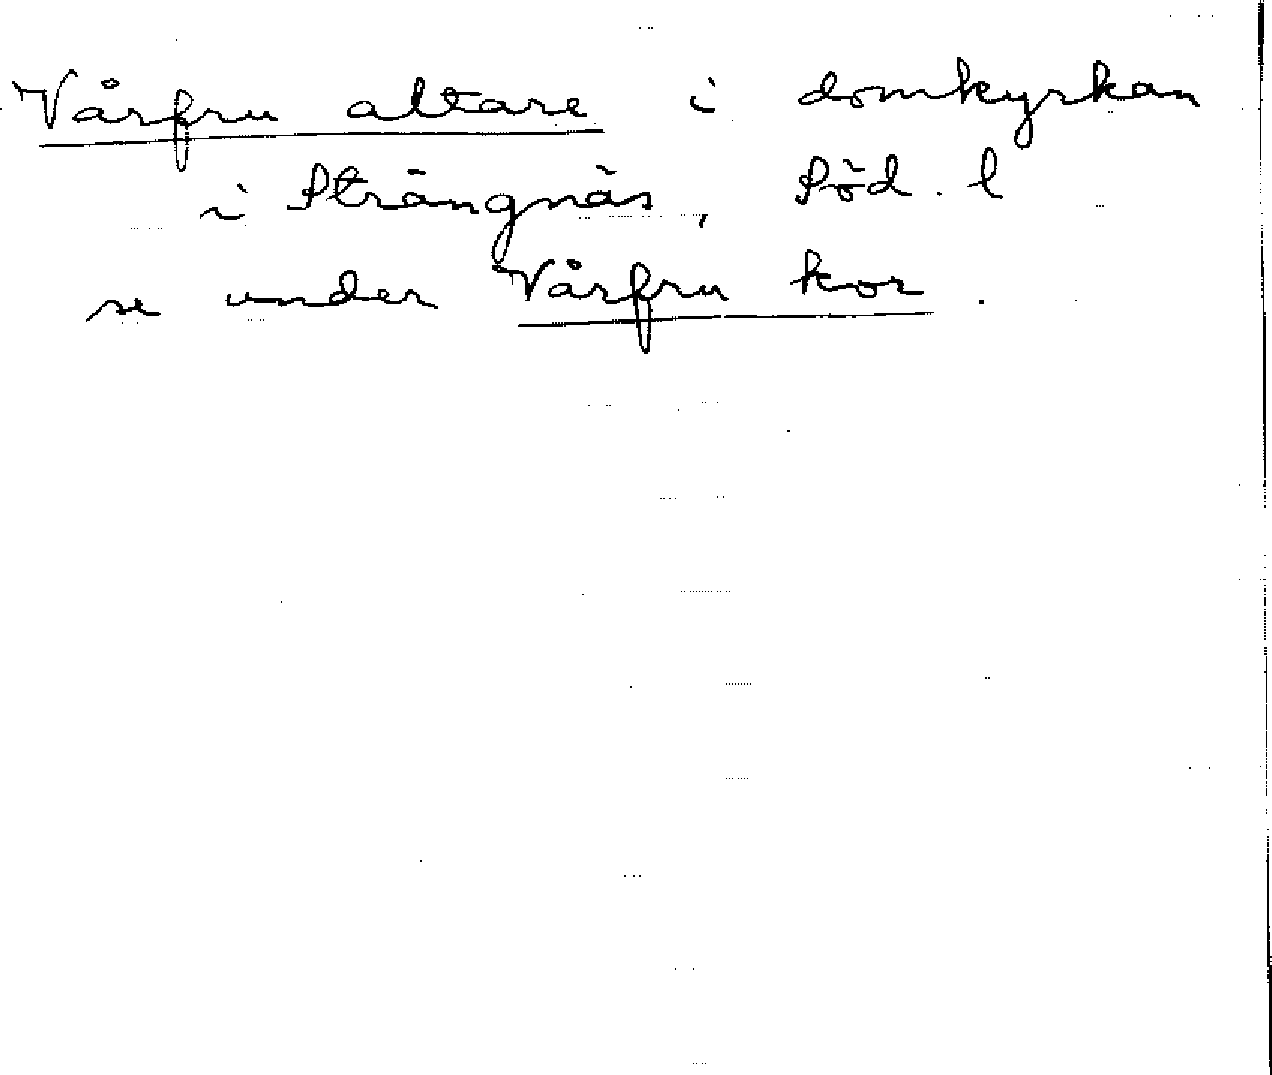 Vårfru altare i domkyrkan
i Strängnäs, Söd. l
se under Vårfru kor.